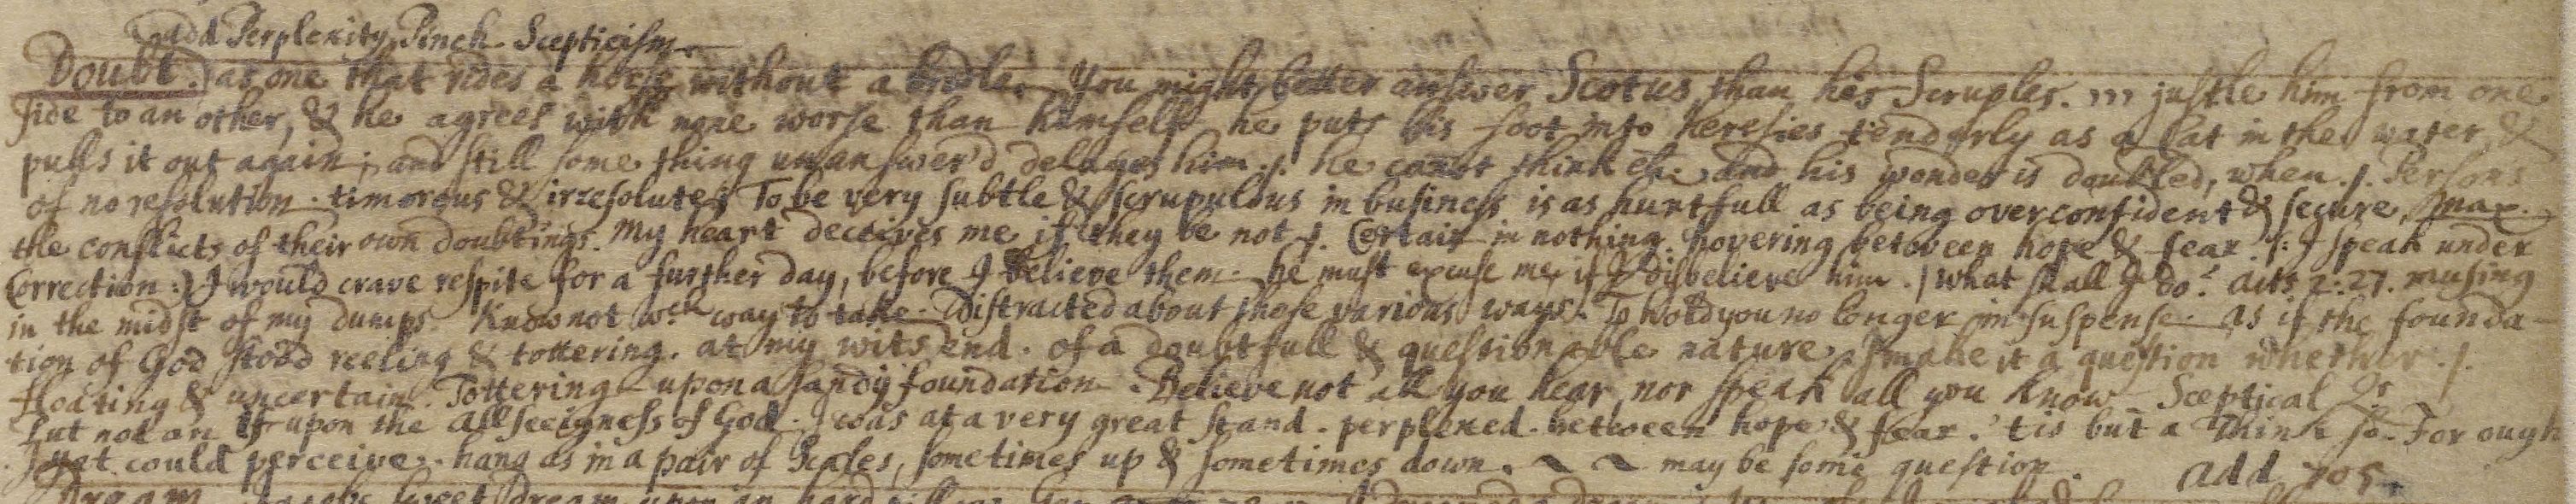 add Perplexity, Pinch. Scepticism.
Doubt. as one that rides a horse without a bridle. You might better answer Scotus than his Scruples. justle him from one
side to an other, & he agrees with none worse than himself he puts his foot into heresies tenderly as a Cat in the water &
pulls it out again, and still some thing unanswer'd delayes him. /. he canot think etc. and his wonder is doubled, when. /. Persons
of no resolution. timorous & irresolute. To be very subtle & scrupulous in business is as hurtfull as being overconfident & secure, max.
the conflicts of their own doubtings. My heart deceives me if they be not /. Certain in nothing. hovering between hope & fear. /: I speak under
Correction :/ I would crave respite for a further day, before I believe them. he must excuse me if I disbelieve him. / what shall I do? Acts 2:27. musing
in the midst of my dumps. Know not wch way to take. Distracted about those various ways. To hold you no longer in suspense. as if the founda-
tion of God stood reeling & tottering. at my wits end. of a doubtfull & questionable nature. I make it a question whether. /.
floating & uncertain. Tottering upon a sandy foundation. Believe not all you hear, nor speak all you know. Sceptical Qs
Put not an If upon the allseeigness of God. I was at a very great stand. perplexed. between hope & fear. 'tis but a Think so. For ough
I yet could perceive. hang as in a pair of Scales, sometimes up & sometimes down. ~ ~ may be some question. add 705.
Dream. Jacobs sweet dream upon an hard pillow